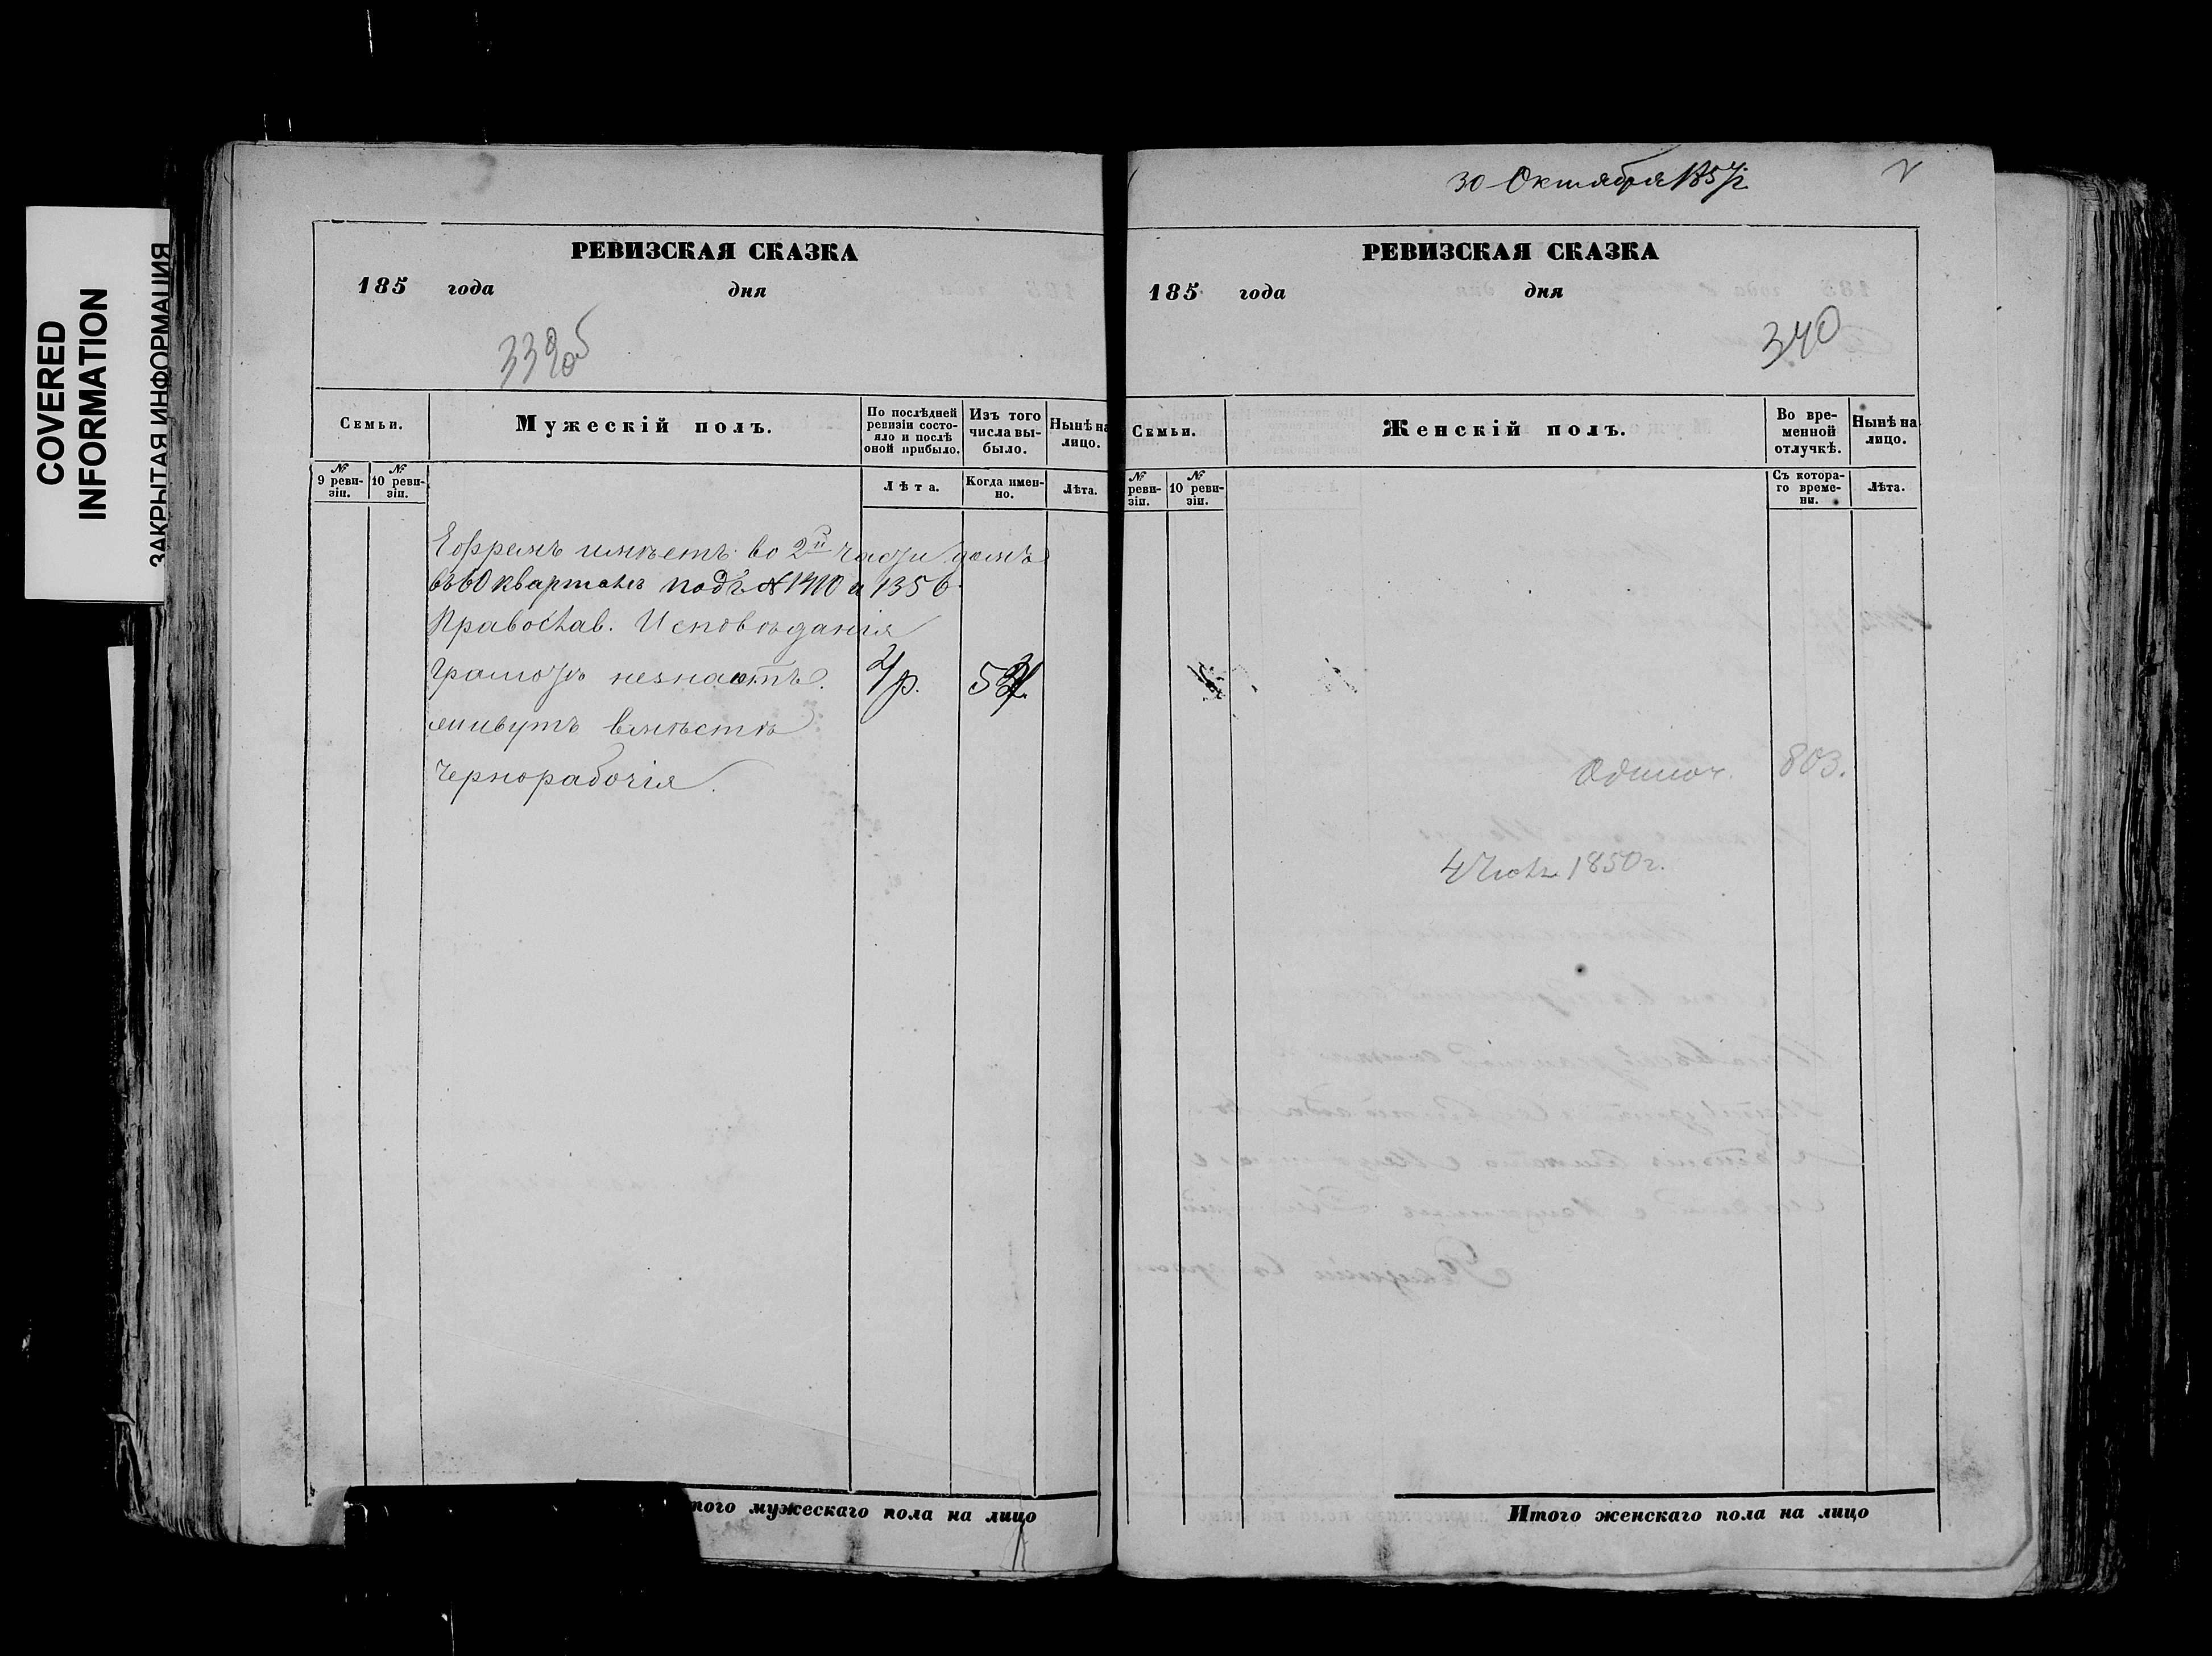 COVERED
INFORMATION
ЗАКРЫТАЯ ИНФОРМАЦИЯ
РЕВИЗСКАЯ СКАЗКА
185 года дня
339об
Семьи.
Мужескій полъ.
По послѣдней ревизіи состояло и послѣ оной прибыло.
Изъ того числа выбыло.
Нынѣ на лицо.
№ 9 ревизіи.
№ 10 ревизіи.
Лѣта.
Когда именно.
Лѣта.
Ефремъ имѣетъ во 2й части домъ
въ 60 кварталѣ подъ № 1410 и 1356
Православ. Исповѣданія
Грамотѣ незнаютъ.
живутъ вмѣстѣ
Чернорабочія.
того мужескаго пола на лицо
30 Октября 1857г
РЕВИЗСКАЯ СКАЗКА
185 года дня
340
Семьи.
Женскій полъ.
Во временной отлучкѣ.
Нынѣ на лицо.
№ ревизіи.
№ 10 ревизіи.
Съ котораго времени.
Лѣта.
Одиноч. 803.
4 Июля 1850г.
Итого женскаго пола на лицо